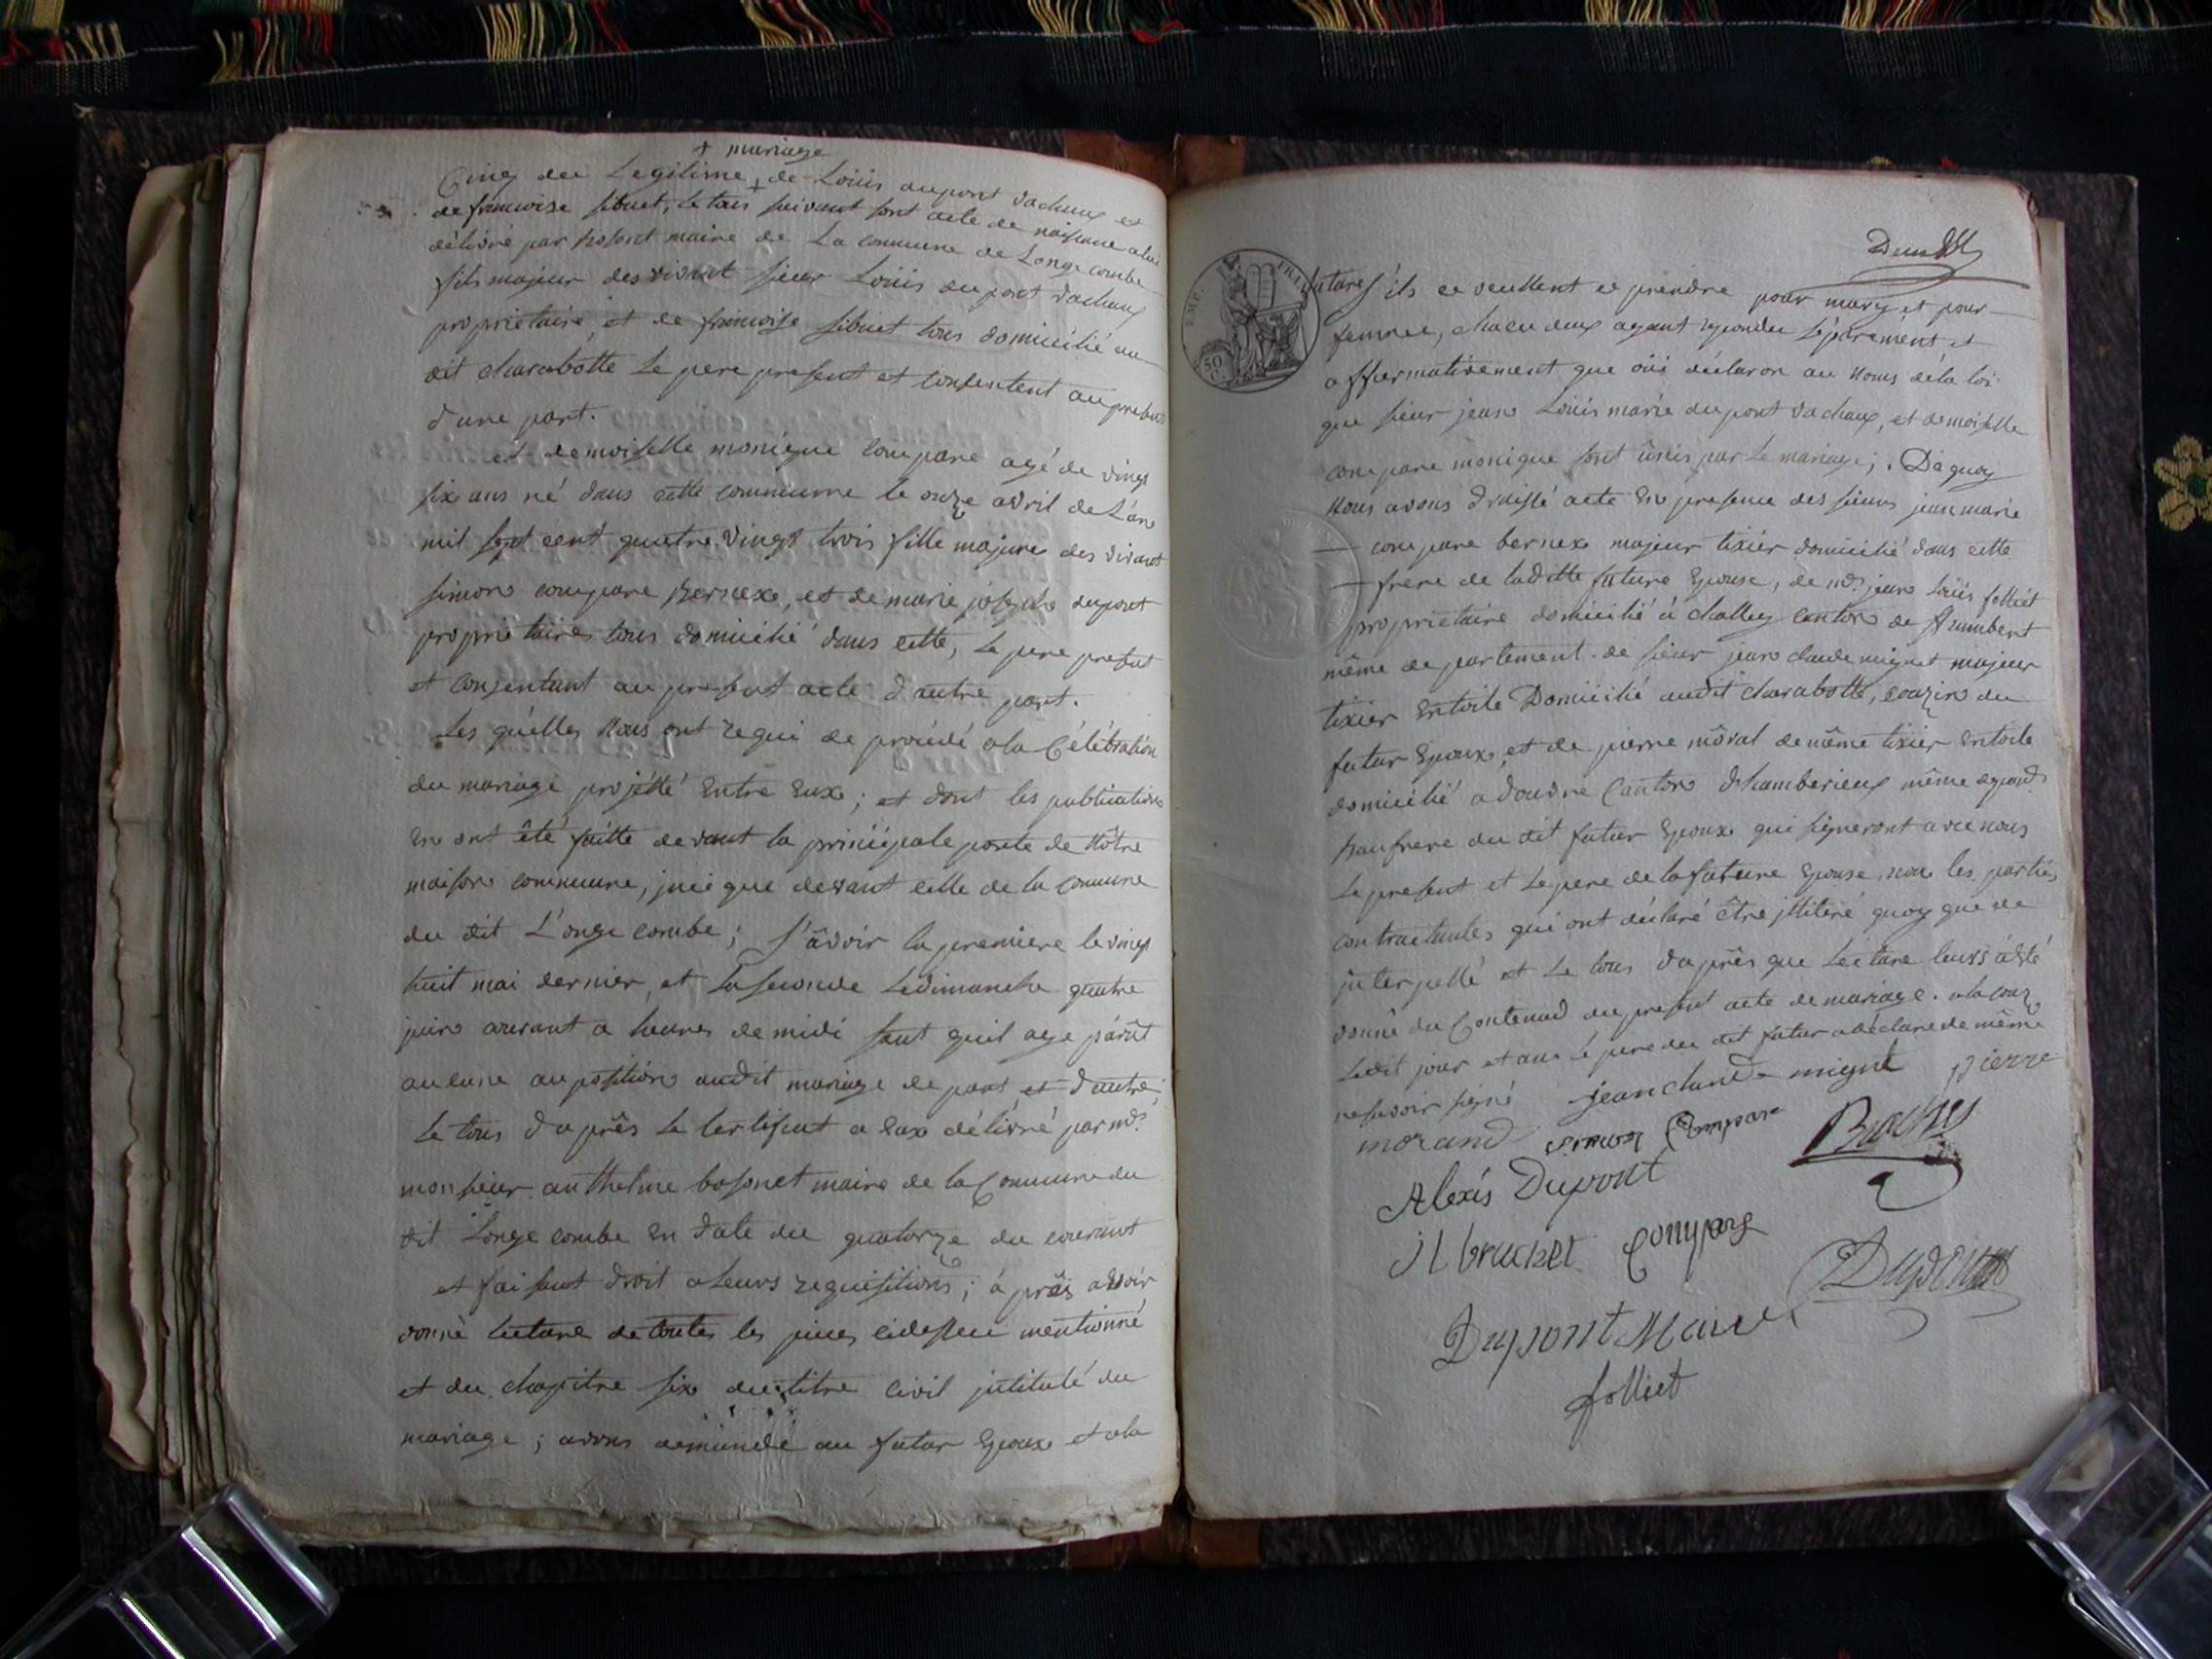 + mariage
Cinq du Legitime + de Loüis dupont dachaux et
de francoise sibuet, le tous suivant sont acte de naissance a lui
délivré par bosonet maire de La commune de Longe combe
fils majeur des vivant sieur Loüis dupont dachaux
proprietaire, et de francoise sibuet tous domicilié au
dit charabotte Le pere present et consentent au present
d'une part.
et demoiselle monique compare agé de vingt
six ans né dans cette commune le onze avril de L'an
mil sept cent quatre vingt trois fille majure des vivant
simon compare Bernex, et de marie josephe dupont
proprietaires tous domicilié dans cette, Le pere present
et consentant au present acte d'autre part.
Les quélles Nous ont requi de procédé a la Célébration
du mariage projétté Entre Eux; et dont les publications
En ont été faitte devant la principale porte de Nôtre
maison commune, inci que devant celle de la comune
du dit L'onge combe; s'âvoir la premiere le vingt
huit mai dernier, et La seconde Ledimanche quatre
juin courant a heures de midi sant quil aye parût
aucune auposition audit mariage de part et d'autre;
Le tous d'aprês Le Certificat a Eux délivré par md.
monsieur anthelme bosonet maire de la Commune du
dit Longe combe En date du quatorze du courant
et faisant droit a leurs requisitions; à prês avoir
donné lecture de toutes les pieces cidessu mentionné
et du chapitre six du titre civil jntitulé du
mariage; avons demandé au futur Epoux et ala
future s'ils ce veullent ce prendre pour mary et pour
femme, chacu deux ayant repondu séparement et
affirmativement que oüi déclaron au Nous déla loi
que sieur jean Loüis marie dupont dachaux, et demoiselle
compare monique sont ûnis par le mariage;. Déquoy
Nous avons draissé acte En presence des sieurs jean marie
compare bernex majeur tixier domicilié dans cette
frere de laditte future Epouse, de md. jean Loüis folliet
proprietaire domicilié à challey canton de St rambert
même departement de sieur jean claude mignet majeur
tixier En toile Domicilié audit charabotte, couzin du
futur Epoux, et de pierre môrat de même tixier En toile
domicilié a douvre Canton d'hamberieux même depard.
baufrere du dit futur Epoux qui signeront avec nous
Le present et Le pere de la future Epouse, non les parties
contractantes qui ont déclaré être jlliteré quoy que de
jnterpellé et Le tous d'aprês que Lecture leurs a été
donné du Contenud au present acte de mariage.
Ledit jour et an Le pere du dit futur a déclare de même
ne savoir signé jean claude mignet pierre
morand simon Compare
Alexis Dupont
jl brachet Compare
Dupont Maire Dupont
folliet
EMP. FRA
50